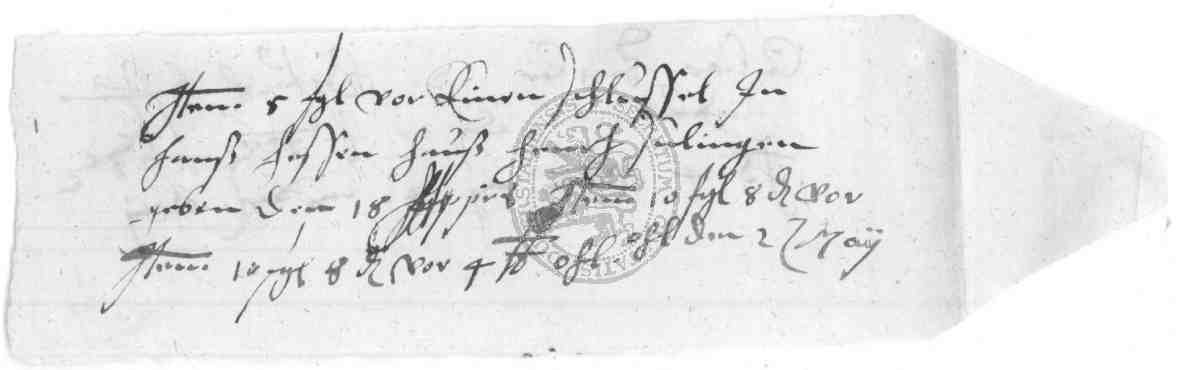 Item 5 ßgl vor Einen schlussel In
hanß hessen hauß henrich sulingen
geben den 18 Item 10 ßgl 8 d vor
Item 10 ßgl 8 d vor 4 lb ohl den 2 May